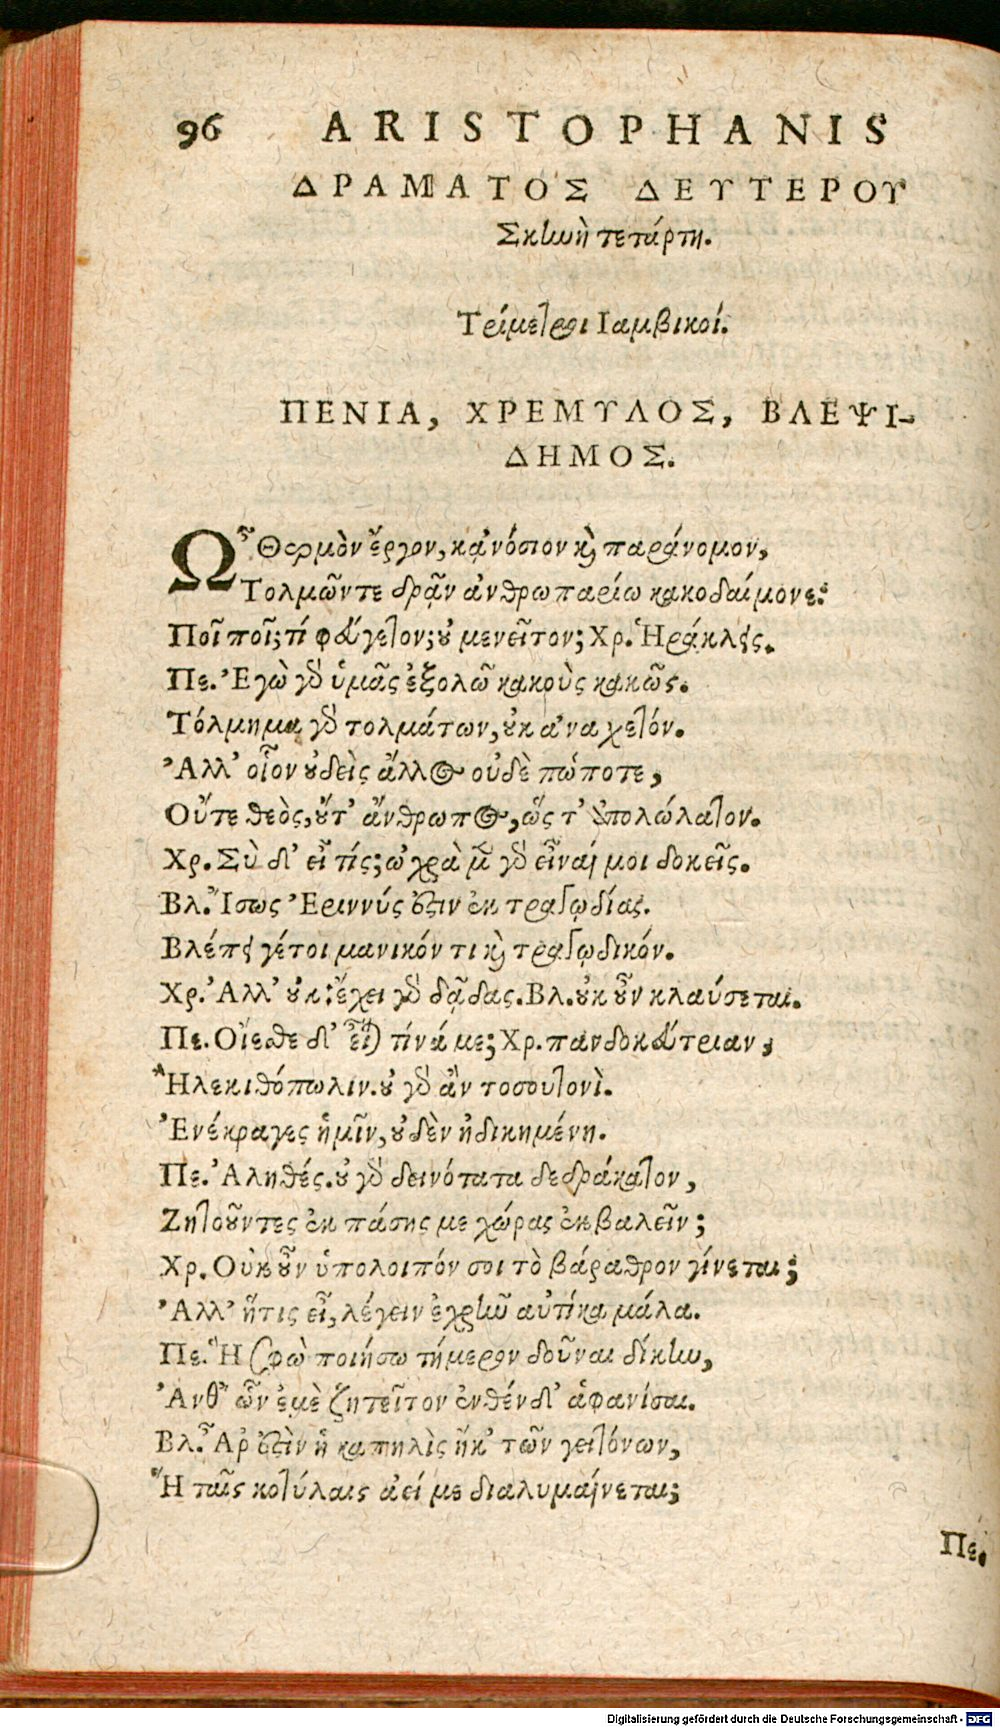 96 ARISTOPHANIS
ΔΡΑΜΑΤΟΣ ΔΕΥΤΕΡΟΥ
Σκηνὴ τετάρτη.
Τρίμετροι Ιαμβικοί.
ΠΕΝΙΑ, ΧΡΕΜΥΛΟΣ, ΒΛΕΨΙ-
ΔΗΜΟΣ.
Ὦ Θερμὸν ἔργον, κᾀνόσιον καὶ παράνομον,
Τολμῶντε δρᾷν ἀνθρωπαρίω κακοδαίμονε.
Ποῖ ποῖ; τί φεύγετον; οὐ μενεῖτον; Χρ. Ἡράκλεις.
Πε. Ἐγὼ γὰρ ὑμᾶς ἐξολῶ κακοὺς κακῶς.
Τόλμημα γὰρ τολμάτων, οὐκ ἀνασχετόν.
Ἀλλ' οἷον οὐδεὶς ἄλλος οὐδὲ πώποτε,
Οὔτε θεὸς, οὔτ' ἄνθρωπος, ὥς τ' ἀπολώλατον.
Χρ. Σὺ δ' εἶ τίς; ὠχρὰ μὲν γὰρ εἶναί μοι δοκεῖς.
Βλ. Ἴσως Ἐριννύς ἐστιν ἐκ τραγῳδίας.
Βλέπει γέτοι μανικόν τι καὶ τραγῳδικόν.
Χρ. Ἀλλ' οὐκ ἔχει γὰρ δᾷδας. Βλ. οὐκοῦν κλαύσεται.
Πε. Οἴεσθε δ' εἶναι τίνά με; Χρ. πανδοκεύτριαν,
Ἢ λεκιθόπωλιν. οὐ γὰρ ἂν τοσουτονὶ.
Ἐνέκραγες ἡμῖν, οὐδὲν ἠδικημένη.
Πε. Ἀληθές. οὐ γὰρ δεινότατα δεδράκατον,
Ζητοῦντες ἐκ πάσης με χώρας ἐκβαλεῖν;
Χρ. Οὐκοῦν ὑπολοιπόν σοι τὸ βάραθρον γίνεται;
Ἀλλ' ἥτις εἶ, λέγειν ἐχρῆν αὐτίκα μάλα.
Πε. Ἣ σφὼ ποιήσω τήμερον δοῦναι δίκην,
Ἀνθ' ὧν ἐμὲ ζητεῖτον ἐνθένδ' ἀφανίσαι.
Βλ. Ἆρ' ἐστὶν ἡ καπηλὶς ἡ 'κ τῶν γειτόνων,
Ἣ ταῖς κοτύλαις ἀεί με διαλυμαίνεται;
Πε.
Digitalisierung gefördert durch die Deutsche Forschungsgemeinschaft - DFG